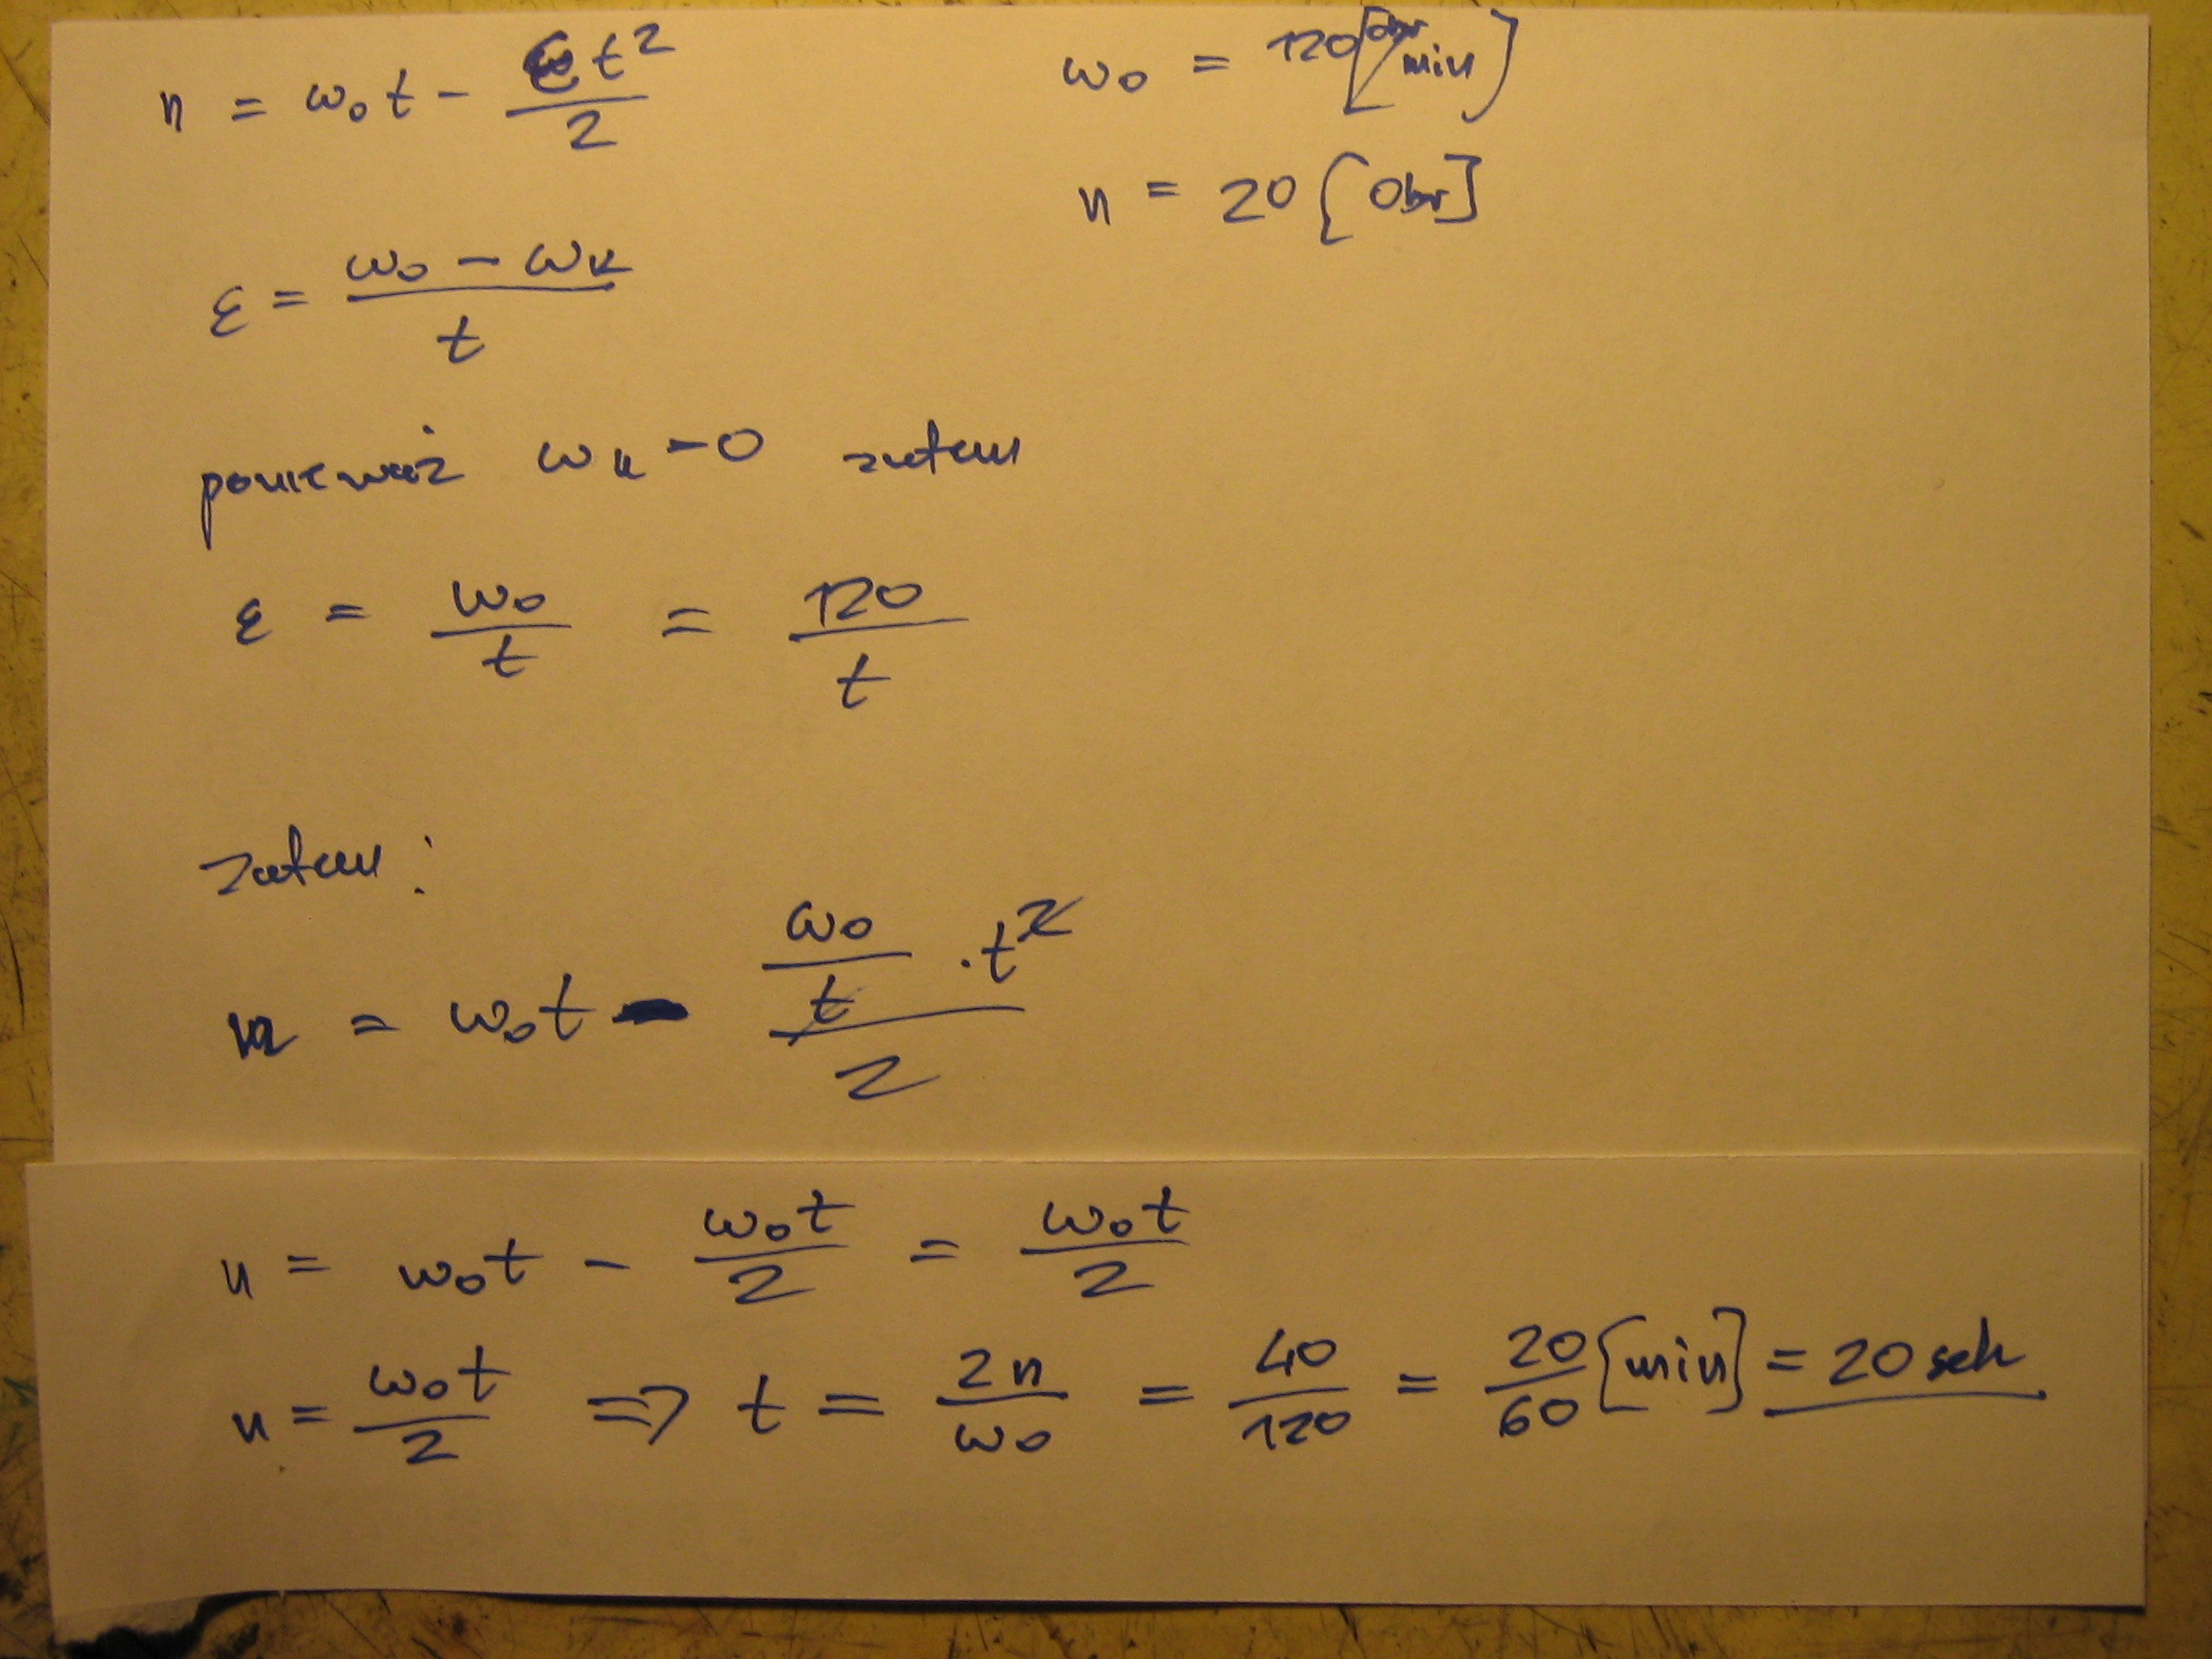 n = ω₀t - εt²/2
ω₀ = 120 [obr/min]
n = 20 [Obr]
ε = (ω₀ - ωₖ)/t
ponieważ ωₖ = 0 zatem
ε = ω₀/t = 120/t
zatem:
n = ω₀t - (ω₀/t · t²)/2
n = ω₀t - ω₀t/2 = ω₀t/2
n = ω₀t/2 => t = 2n/ω₀ = 40/120 = 20/60 [min] = 20 sek